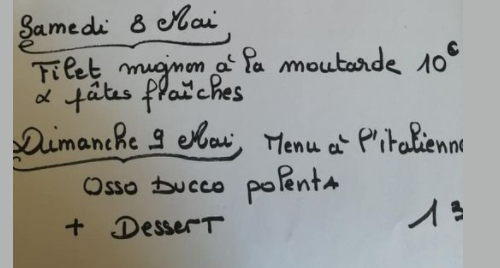 Samedi 8 Mai
Filet mignon à la moutarde 10€
& pâtes fraîches
Dimanche 9 Mai, Menu à l'italienne
Osso Bucco polenta
+ Dessert 13